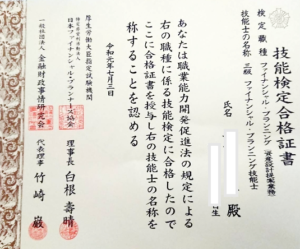 技能検定合格証書
検定職種 ファイナンシャル・プランニング 資産設計提案業務
技能士の名称 三級 ファイナンシャル・プランニング技能士
氏名
殿
生
あなたは職業能力開発促進法の規定による
右の職種に係る技能検定に合格したので
ここに合格証書を授与し右の技能士の名称を
称することを認める
令和元年七月三日
厚生労働大臣指定試験機関
特定非営利活動法人
日本ファイナンシャル・プランナーズ協会
理事長 白根壽晴
一般社団法人 金融財政事情研究会
代表理事 竹崎巌